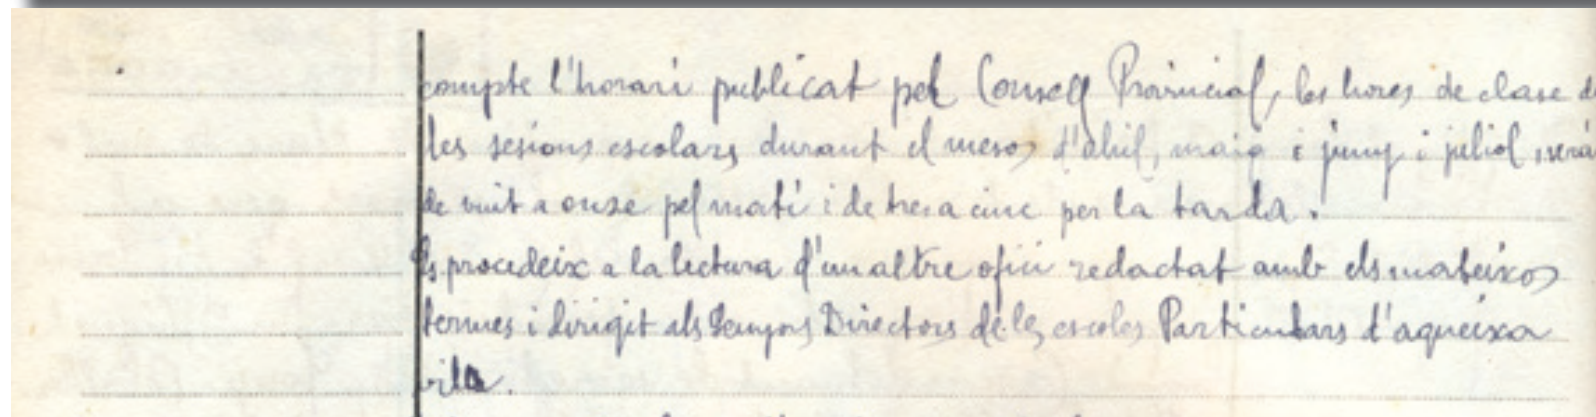 compte l'horari publicat pel Consell Provincial, les hores de clase de
les sesions escolars durant el mesos d'abril, maig i juny i juliol, sera
de vuit a onze pel matí i de tres a cinc per la tarda.
Es procedeix a la lectura d'un altre ofici redactat amb els mateixos
termes i dirigit als Senyors Directors de les escoles Particulars d'aqueixa
vila.